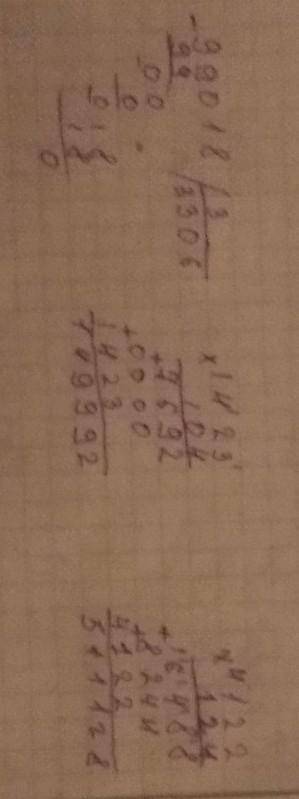 -99018 | 3
99 | 3306
-00
0
-018
18
0
×1423
104
+5692
+0000
1423
149992
×4122
124
+16488
+8244
4122
511128